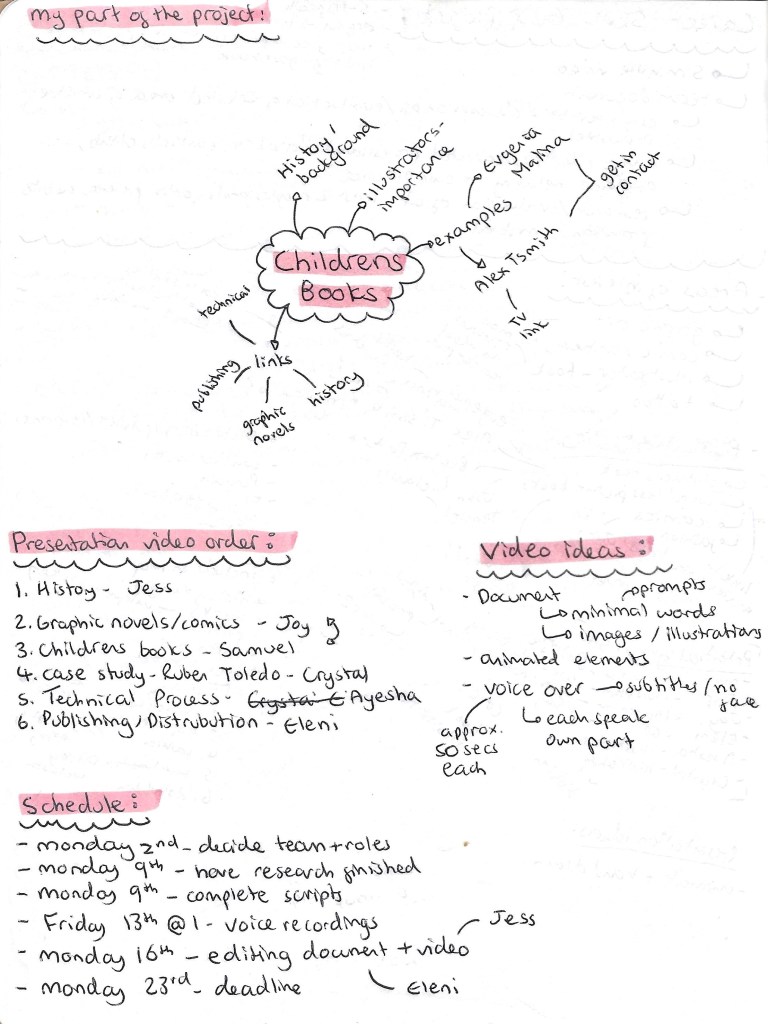 My part of the project:
History/
background
illustrators-
importance
examples
Evgenia
Malina
Alex T Smith
get in
contact
TV
link
Childrens
Books
links
technical
publishing
graphic
novels
history
Presentation video order:
1. History - Jess
2. Graphic novels/comics - Joy
3. Childrens books - Samuel
4. Case study - Ruben Toledo - Crystal
5. Technical Process - Crystal E Ayesha
6. Publishing/Distrubution - Eleni
Video ideas:
- Document
prompts
minimal words
images / illustrations
- animated elements
- voice over → subtitles / no
face
each speak
own part
approx.
50 secs
each
Schedule:
- monday 2nd - decide team + roles
- monday 9th - have research finished
- monday 9th - complete scripts
- Friday 13th @ 1 - voice recordings
- monday 16th - editing document + video
Jess
Eleni
- monday 23rd - deadline